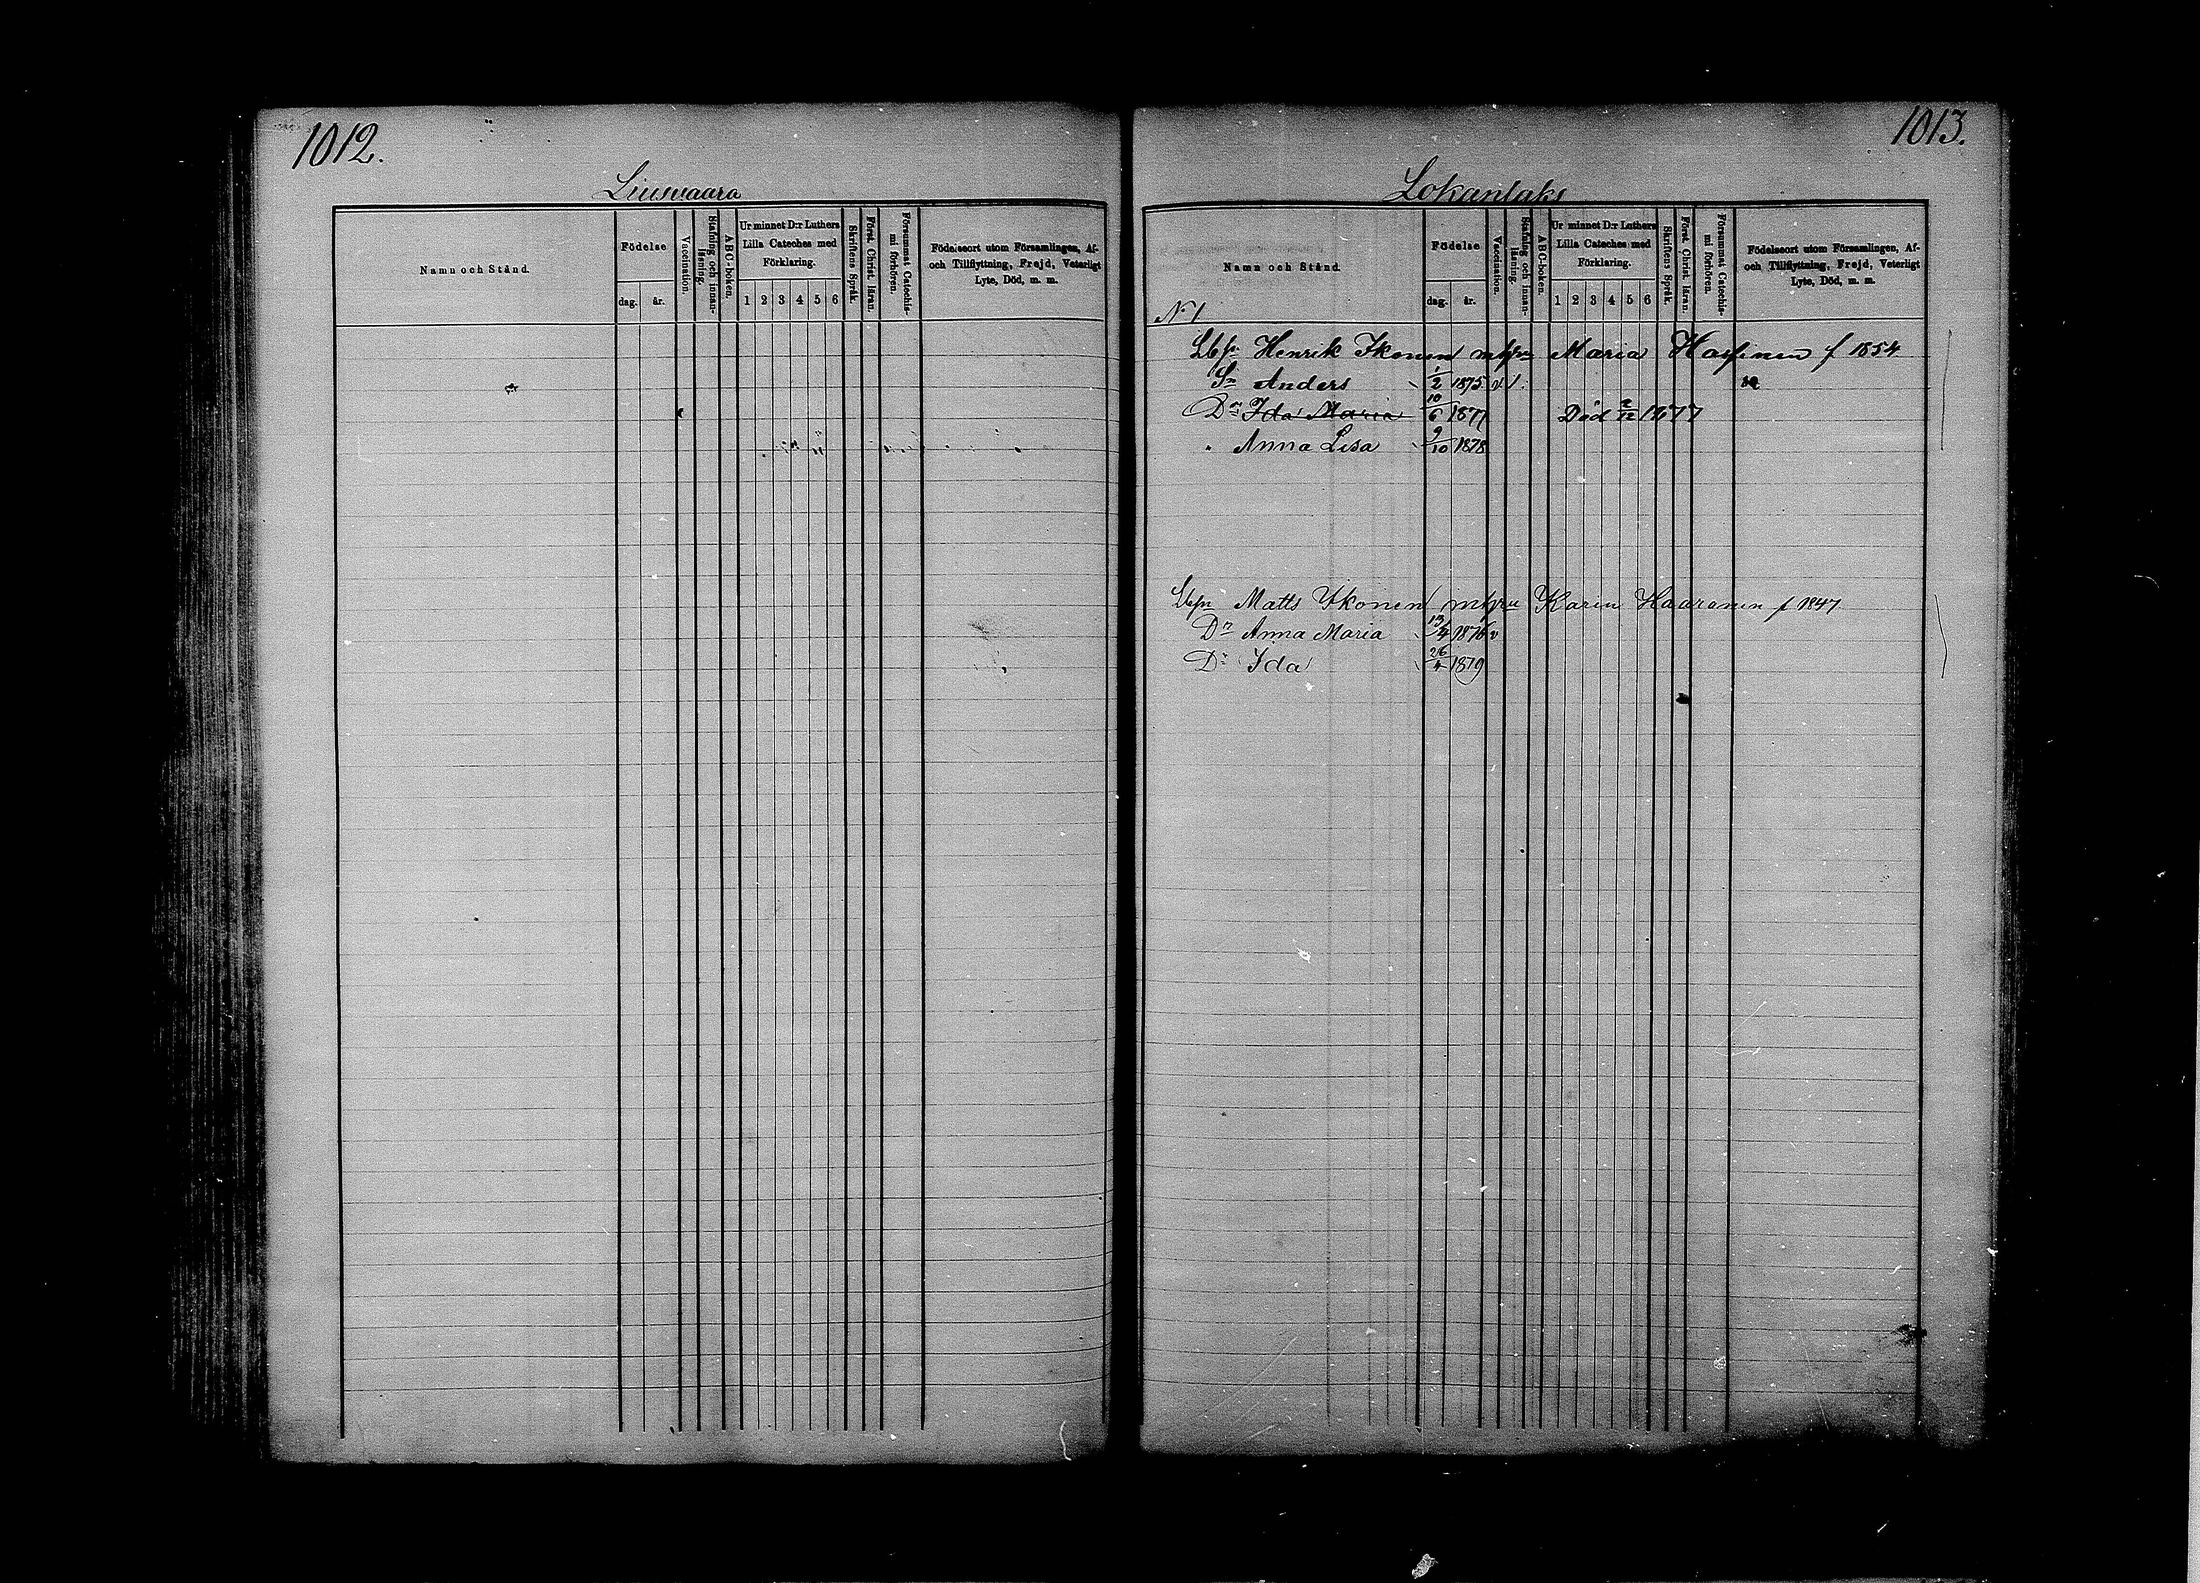 1012.
Liusvaara
Namn och Stånd.
Födelse
dag.
år.
Vaccination.
Stafning och innan-läsning.
ABC-boken.
Ur minnet D:r Luthers
Lilla Cateches med
Förklaring.
1 2 3 4 5 6
Skriftens Språk.
Först. Christ. läran.
Försummat Catechis-mi förhören.
Födelseort utom Församlingen, Af-
och Tillflyttning, Frejd, Veterligt
Lyte, Död, m. m.
1013.
Lokanlaks
Namn och Stånd.
Födelse
dag.
år.
Vaccination.
Stafning och innan-läsning.
ABC-boken.
Ur minnet D:r Luthers
Lilla Cateches med
Förklaring.
1 2 3 4 5 6
Skriftens Språk.
Först. Christ. läran.
Försummat Catechis-mi förhören.
Födelseort utom Församlingen, Af-
och Tillflyttning, Frejd, Veterligt
Lyte, Död, m. m.
N:1
Henrik Ikonen Maria f 1854
Sn Anders 1/2 1875 v 1.
Dr Ida Maria 10/6 1877 Död 2/12 1877
" Anna Lisa 9/10 1878
Matts Ikonen Karin Haaranen f 1847
Dr Anna Maria 13/4 1876 v
Dr Ida 26/4 1879